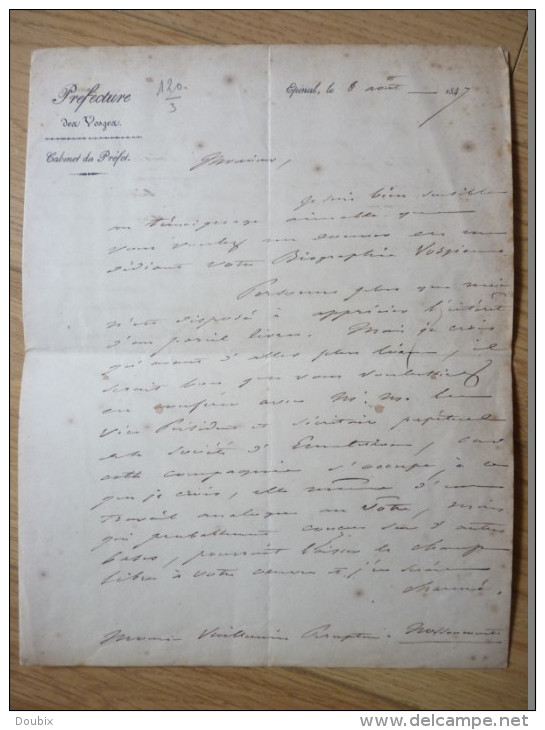 Préfecture
des Vosges.
Cabinet du Préfet.
120.
3
Epinal, le 8 août 1847
Monsieur,
Je suis bien sensible
au témoignage aimable que
vous voulez me donner en me
dédiant votre Biographie Vosgienne
Personne plus que moi
n'est disposé à apprécier l'intérêt
d'un pareil livre. Mais je crois
qu'avant d'aller plus loin, il
serait bien que vous voulussiez
en conférer avec M. M. le
Vice Président et secrétaire perpétuel
de la société d'Emulation, car
cette compagnie s'occupe, à ce
que je crois, elle même d'un
travail analogue au vôtre, mais
qui probablement conçu sur d'autres
bases, pourrait laisser le champ
libre à votre oeuvre et j'en serais
charmé.
Monsieur Vuillemin
Doubix
www.delcampe.net